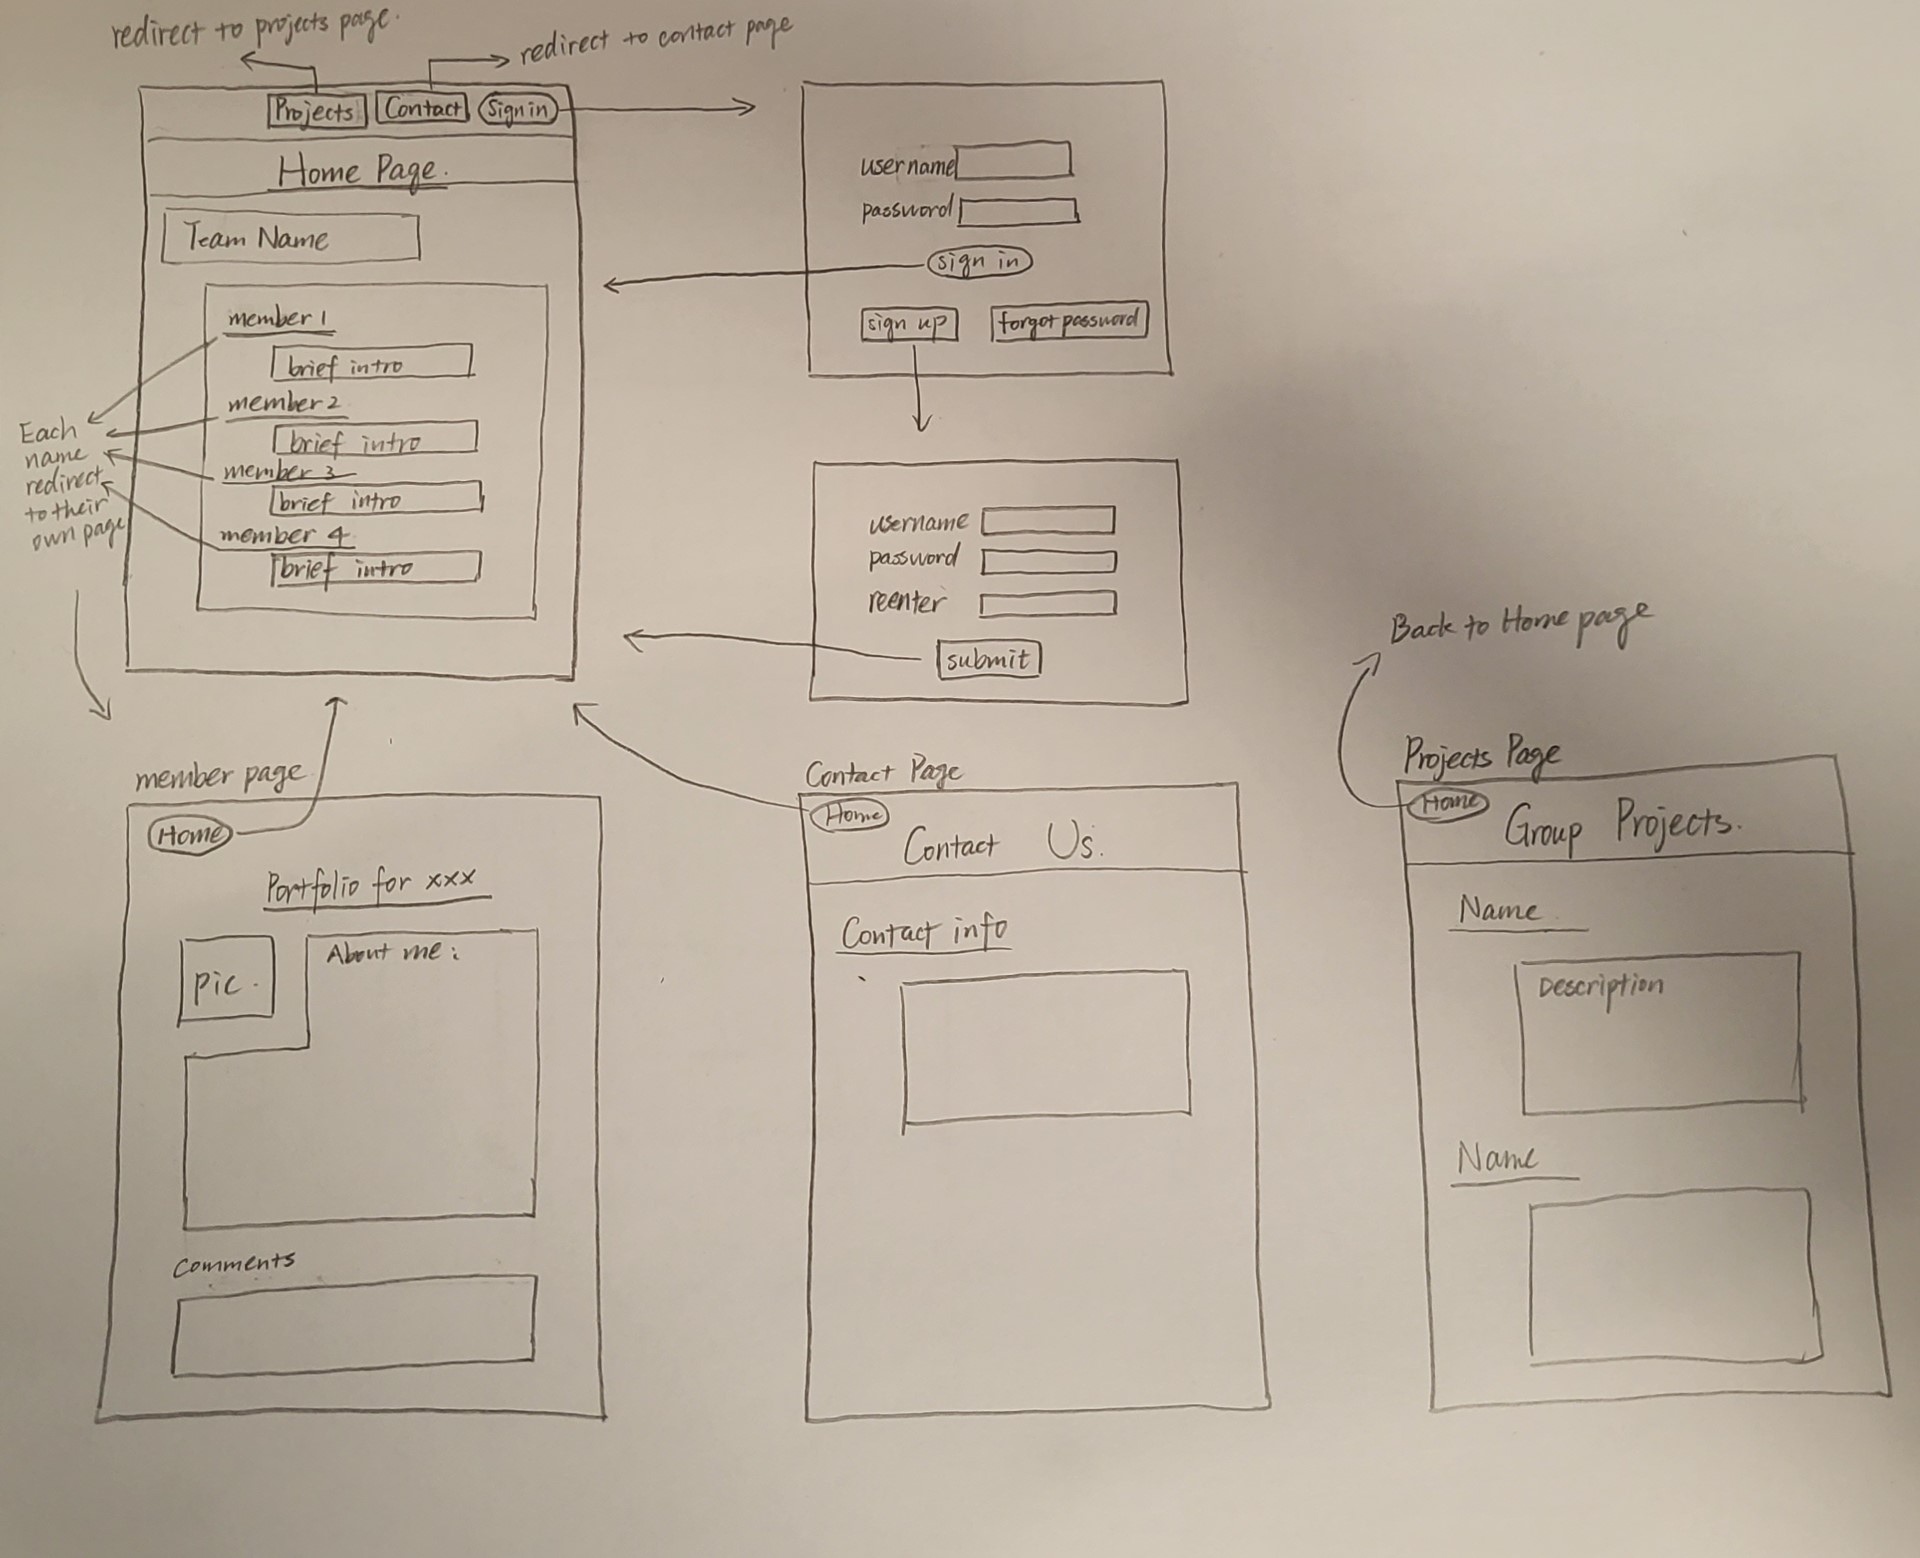 redirect to projects page.
redirect to contact page
Projects Contact Sign in
Home Page.
Team Name
member 1
brief intro
member 2
brief intro
member 3
brief intro
member 4
brief intro
Each
name
redirect
to their
own page
username
password
sign in
sign up forgot password
username
password
reenter
submit
Back to Home page
member page
Home
Portfolio for xxx
pic.
About me:
Comments
Contact Page
Home
Contact Us.
Contact info
Projects Page
Home
Group Projects.
Name
Description
Name